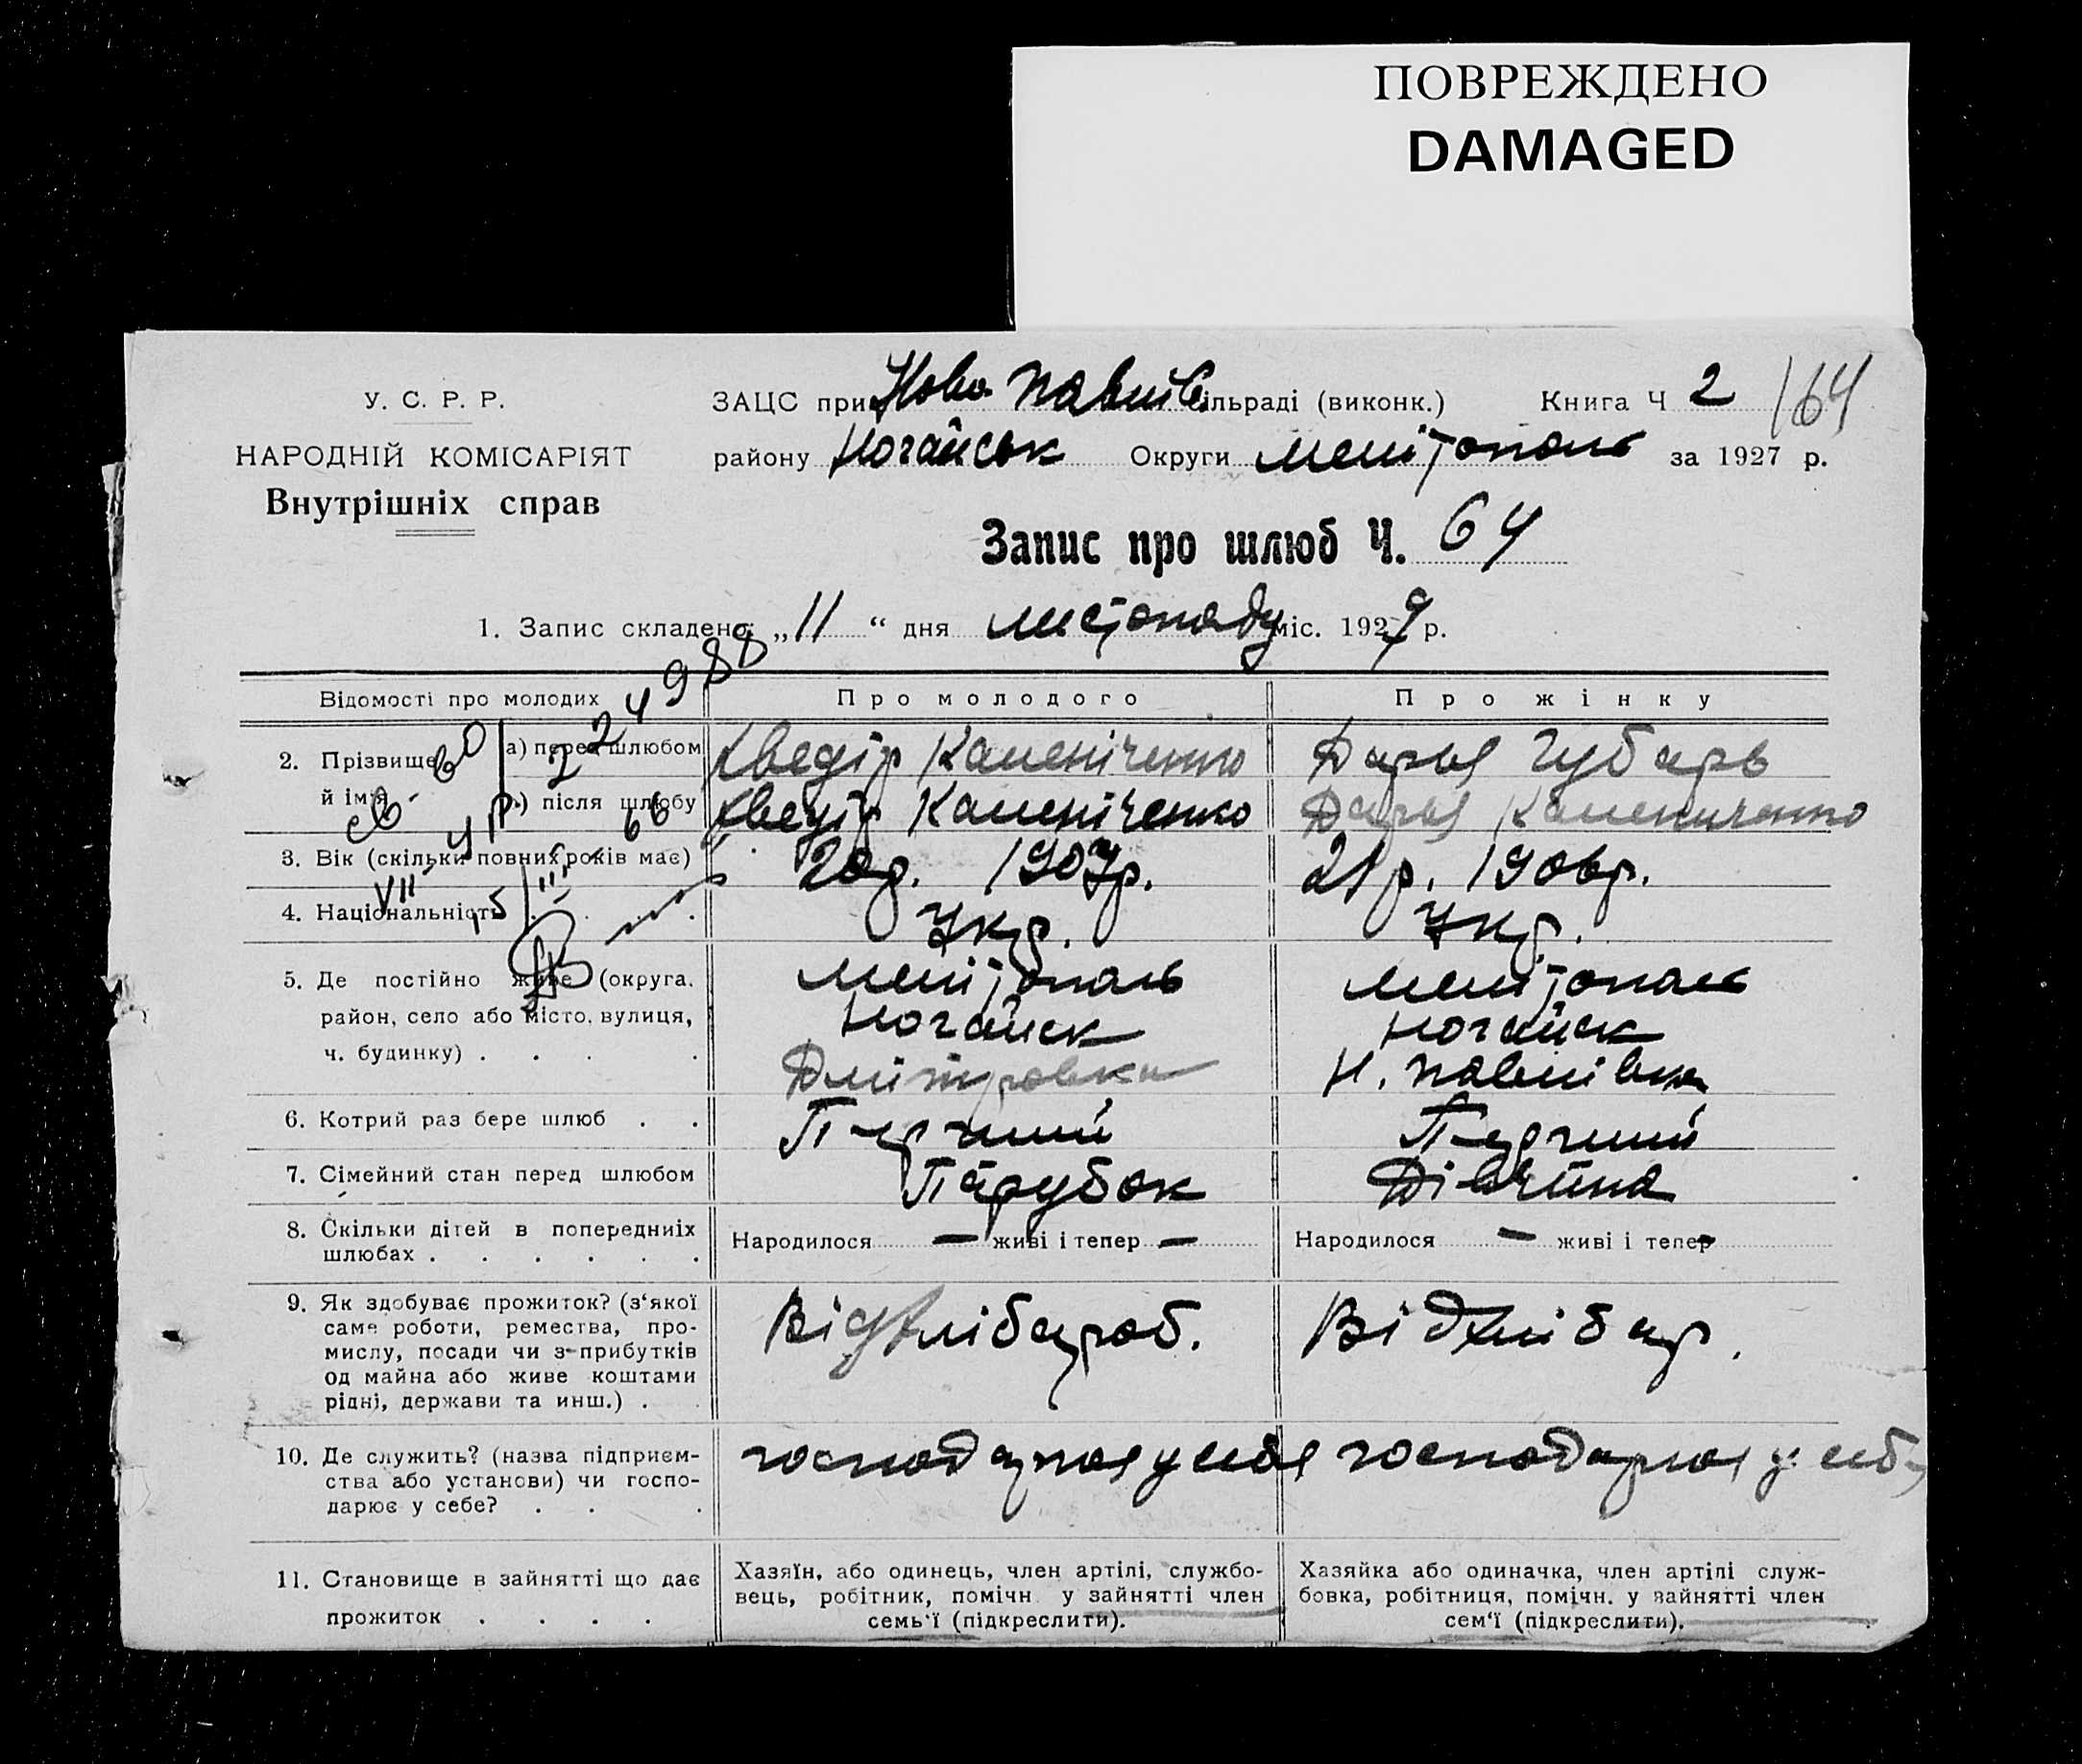 ПОВРЕЖДЕНО
DAMAGED
У. С. Р. Р.
НАРОДНІЙ КОМІСАРІЯТ
Внутрішніх справ
ЗАЦС при Ново Павлів. сільраді (виконк.) Книга Ч 2 164
району Ногайськ Округи Мелітополь за 1927 р.
Запис про шлюб Ч. 64
1. Запис складено: „11“ дня листопаду міс. 1927 р.
Відомості про молодих
Про молодого
Про жінку
2. Прізвище й ім'я
а) перед шлюбом
Хведір Каменіченко
Дарья Губарь
б) після шлюбу
Хведір Каменіченко
Дарья Камениченко
3. Вік (скільки повних років має)
20р. 1907р.
21р. 1906р.
4. Національність
Укр.
Укр.
5. Де постійно живе (округа,
район, село або місто, вулиця,
ч. будинку) . . . .
Мелітополь
Ногайск
Дмітровка
Мелітополь
Ногайск
Н. Павлівка
6. Котрий раз бере шлюб . .
Перчий
Перчий
7. Сімейний стан перед шлюбом
Парубок
Дівчина
8. Скільки дітей в попередниіх
шлюбах . . . . . .
Народилося — живі і тепер —
Народилося — живі і тепер —
9. Як здобуває прожиток? (з'якої
саме роботи, ремества, про-
мислу, посади чи з-прибутків
од майна або живе коштами
рідні, держави та инш.) .
Від хлібароб.
Від хлібар.
10. Де служить? (назва підприєм-
ства або установи) чи госпо-
дарює у себе? . . .
господарює у себя
господарює у себ
11. Становище в зайнятті що дає
прожиток . . . .
Хазяїн, або одинець, член артілі, службо-
вець, робітник, помічн. у зайнятті член
семь'ї (підкреслити).
Хазяйка або одиначка, член артілі служ-
бовка, робітниця, помічн. у зайнятті член
сем'ї (підкреслити).